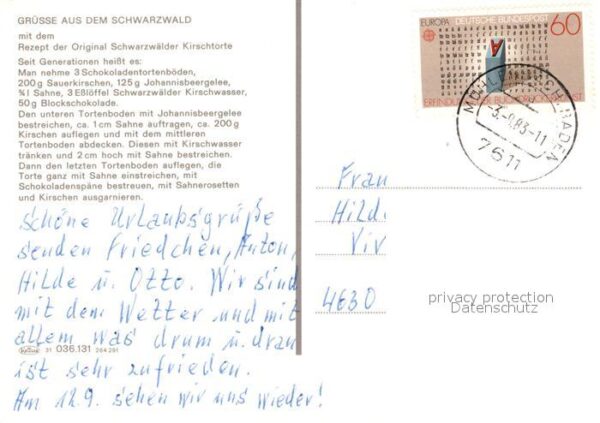 GRÜSSE AUS DEM SCHWARZWALD
mit dem
Rezept der Original Schwarzwälder Kirschtorte
Seit Generationen heißt es:
Man nehme 3 Schokoladentortenböden,
200 g Sauerkirschen, 125 g Johannisbeergelee,
¾ l Sahne, 3 Eßlöffel Schwarzwälder Kirschwasser,
50 g Blockschokolade.
Den unteren Tortenboden mit Johannisbeergelee
bestreichen, ca. 1 cm Sahne auftragen, ca. 200 g
Kirschen auflegen und mit dem mittleren
Tortenboden abdecken. Diesen mit Kirschwasser
tränken und 2 cm hoch mit Sahne bestreichen.
Dann den letzten Tortenboden auflegen, die
Torte ganz mit Sahne einstreichen, mit
Schokoladenspäne bestreuen, mit Sahnerosetten
und Kirschen ausgarnieren.
schöne Urlaubsgrüße
senden Friedchen, Anton,
Hilde u. Otto. Wir sind
mit dem Wetter und mit
allem was drum u. dran
ist sehr zufrieden.
Am 12.9. sehen wir uns wieder!
31 036.131 264 291
EUROPA DEUTSCHE BUNDESPOST 60
ERFINDUNG DER BUCHDRUCKKUNST
BADEN
7611
Frau
Hild.
Viv
4630
privacy protection
Datenschutz